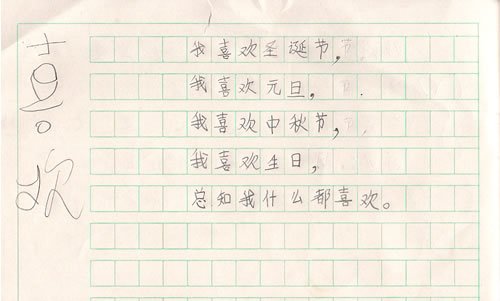 喜欢
我喜欢圣诞节，
我喜欢元旦，
我喜欢中秋节，
我喜欢生日，
总知我什么都喜欢。